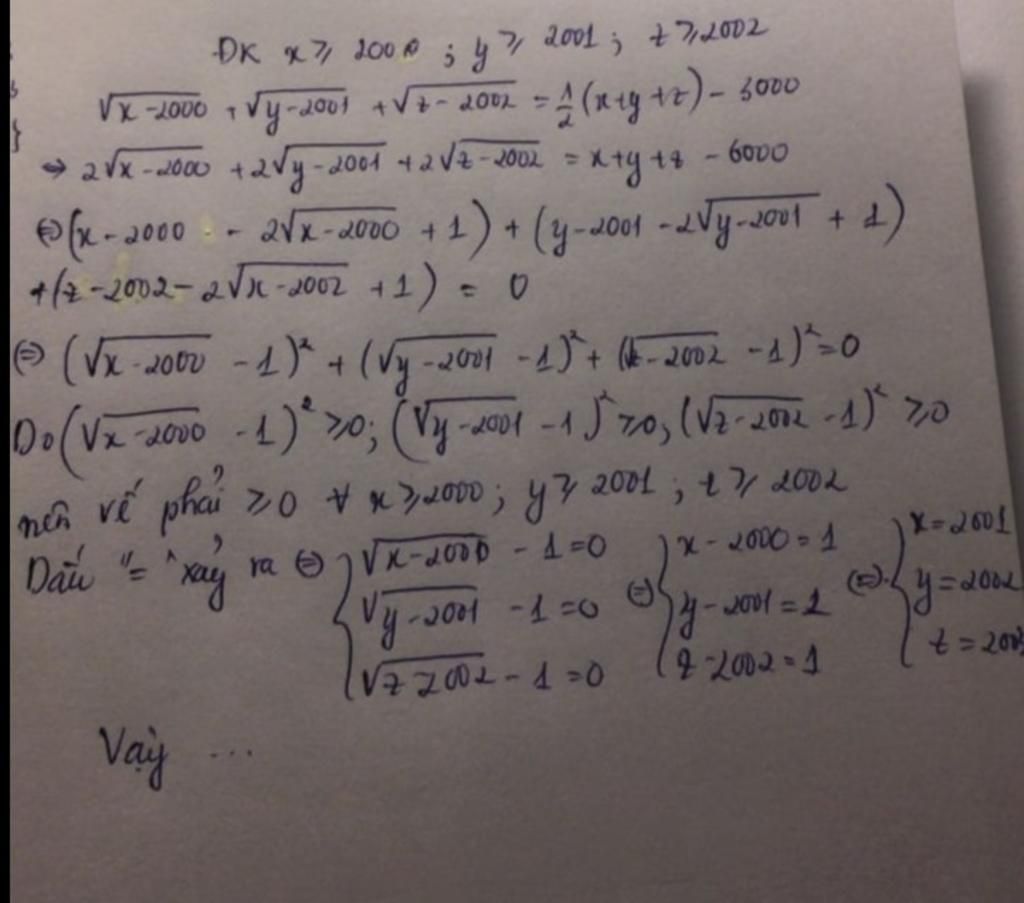 ĐK x ⩾ 2000 ; y ⩾ 2001 ; z ⩾ 2002
√(x-2000) + √(y-2001) + √(z-2002) = 1/2 (x+y+z) - 3000
⇔ 2√(x-2000) + 2√(y-2001) + 2√(z-2002) = x+y+z - 6000
⇔ (x-2000 - 2√(x-2000) + 1) + (y-2001 - 2√(y-2001) + 1)
+ (z-2002 - 2√(x-2002) + 1) = 0
⇔ (√(x-2000) - 1)² + (√(y-2001) - 1)² + (√(z-2002) - 1)² = 0
Do (√(x-2000) - 1)² ⩾ 0; (√(y-2001) - 1)² ⩾ 0; (√(z-2002) - 1)² ⩾ 0
nên vế phải ⩾ 0 ∀ x ⩾ 2000; y ⩾ 2001; z ⩾ 2002
Dấu "=" xảy ra ⇔ { √(x-2000) - 1 = 0 ⇔ { x - 2000 = 1 ⇔ { x = 2001
√(y-2001) - 1 = 0 y - 2001 = 1 y = 2002
√(z-2002) - 1 = 0 z - 2002 = 1 z = 2003
Vậy ...